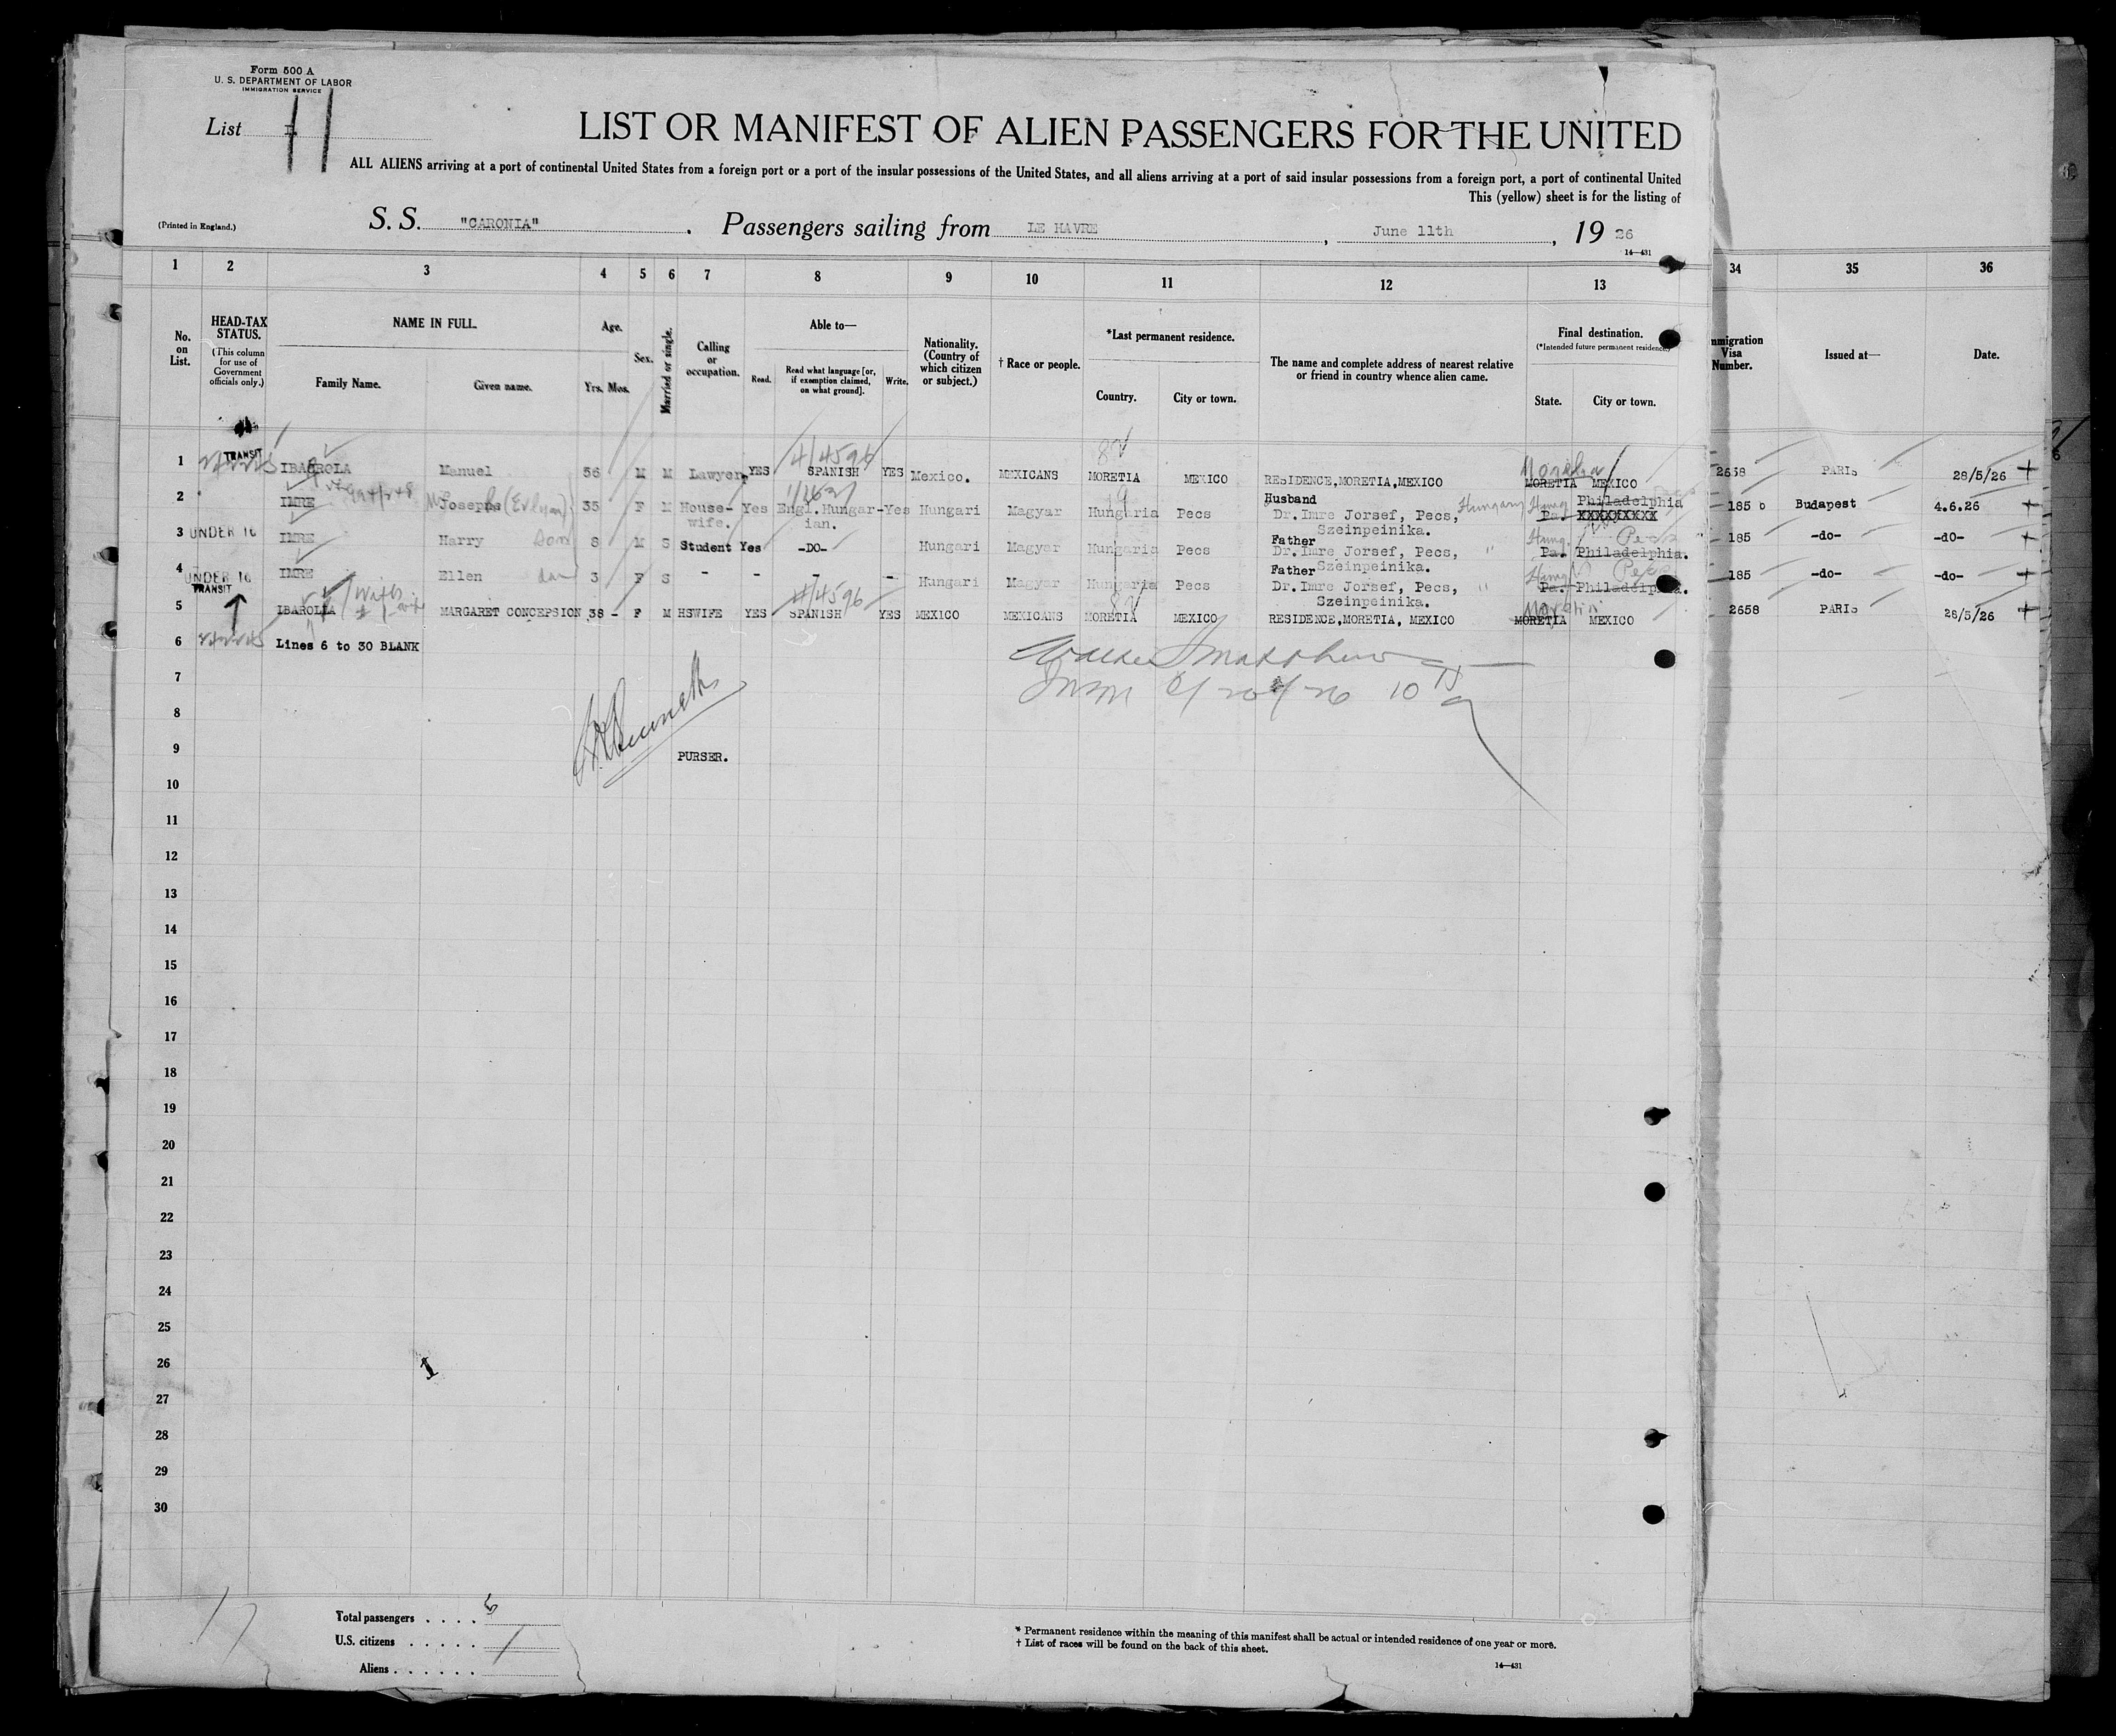 Form 500 A
U. S. DEPARTMENT OF LABOR
IMMIGRATION SERVICE
List I
LIST OR MANIFEST OF ALIEN PASSENGERS FOR THE UNITED
ALL ALIENS arriving at a port of continental United States from a foreign port or a port of the insular possessions of the United States, and all aliens arriving at a port of said insular possessions from a foreign port, a port of continental United
This (yellow) sheet is for the listing of
(Printed in England.) S. S. "CARONIA". Passengers sailing from LE HAVRE, June 11th, 19 26
14—431
1 2 3 4 5 6 7 8 9 10 11 12 13 34 35 36
No. on List.
HEAD-TAX STATUS.
(This column for use of Government officials only.)
NAME IN FULL.
Family Name. Given name.
Age.
Yrs. Mos.
Sex.
Married or single.
Calling or occupation.
Able to—
Read. Read what language [or, if exemption claimed, on what ground]. Write.
Nationality. (Country of which citizen or subject.)
† Race or people.
*Last permanent residence.
Country. City or town.
The name and complete address of nearest relative or friend in country whence alien came.
Final destination.
(*Intended future permanent residence.)
State. City or town.
mmigration Visa Number.
Issued at—
Date.
4/4596
1 TRANSIT IBARROLA Manuel 56 M M Lawyer YES SPANISH YES Mexico. MEXICANS MORETIA MEXICO RESIDENCE,MORETIA,MEXICO MORETIA MEXICO 2658 PARIS 28/5/26
2 IMRE Josephs (Evlyan) 35 F M House-wife. Yes Engl.Hungar-ian. Yes Hungari Magyar Hungaria Pecs Husband Dr.Imre Jorsef, Pecs, Szeinpeinika. Hungary Hung Pa. Philadelphia XXXXXXXXX 185 Budapest 4.6.26
3 UNDER 16 IMRE Harry Son 8 M S Student Yes -DO- Hungari Magyar Hungaria Pecs Father Dr.Imre Jorsef, Pecs, Szeinpeinika. " Hung. Pa. Philadelphia. 185 -do- -dO-
4 UNDER 16 IMRE Ellen dau 3 F S - - - - Hungari Magyar Hungaria Pecs Father Dr.Imre Jorsef, Pecs, Szeinpeinika. " Hung Pa. Philadelphia. 185 -do- -do-
4/4596
5 TRANSIT IBAROLLA MARGARET CONCEPSION 38 - F M HSWIFE YES SPANISH YES MEXICO MEXICANS MORETIA MEXICO RESIDENCE,MORETIA, MEXICO MORETIA MEXICO 2658 PARIS 28/5/26
6 Lines 6 to 30 BLANK
7
8
9 PURSER.
10
11
12
13
14
15
16
17
18
19
20
21
22
23
24
25
26
27
28
29
30
Total passengers . . . .
U.S. citizens . . . . .
Aliens . . . . . .
* Permanent residence within the meaning of this manifest shall be actual or intended residence of one year or more.
† List of races will be found on the back of this sheet.
14—431